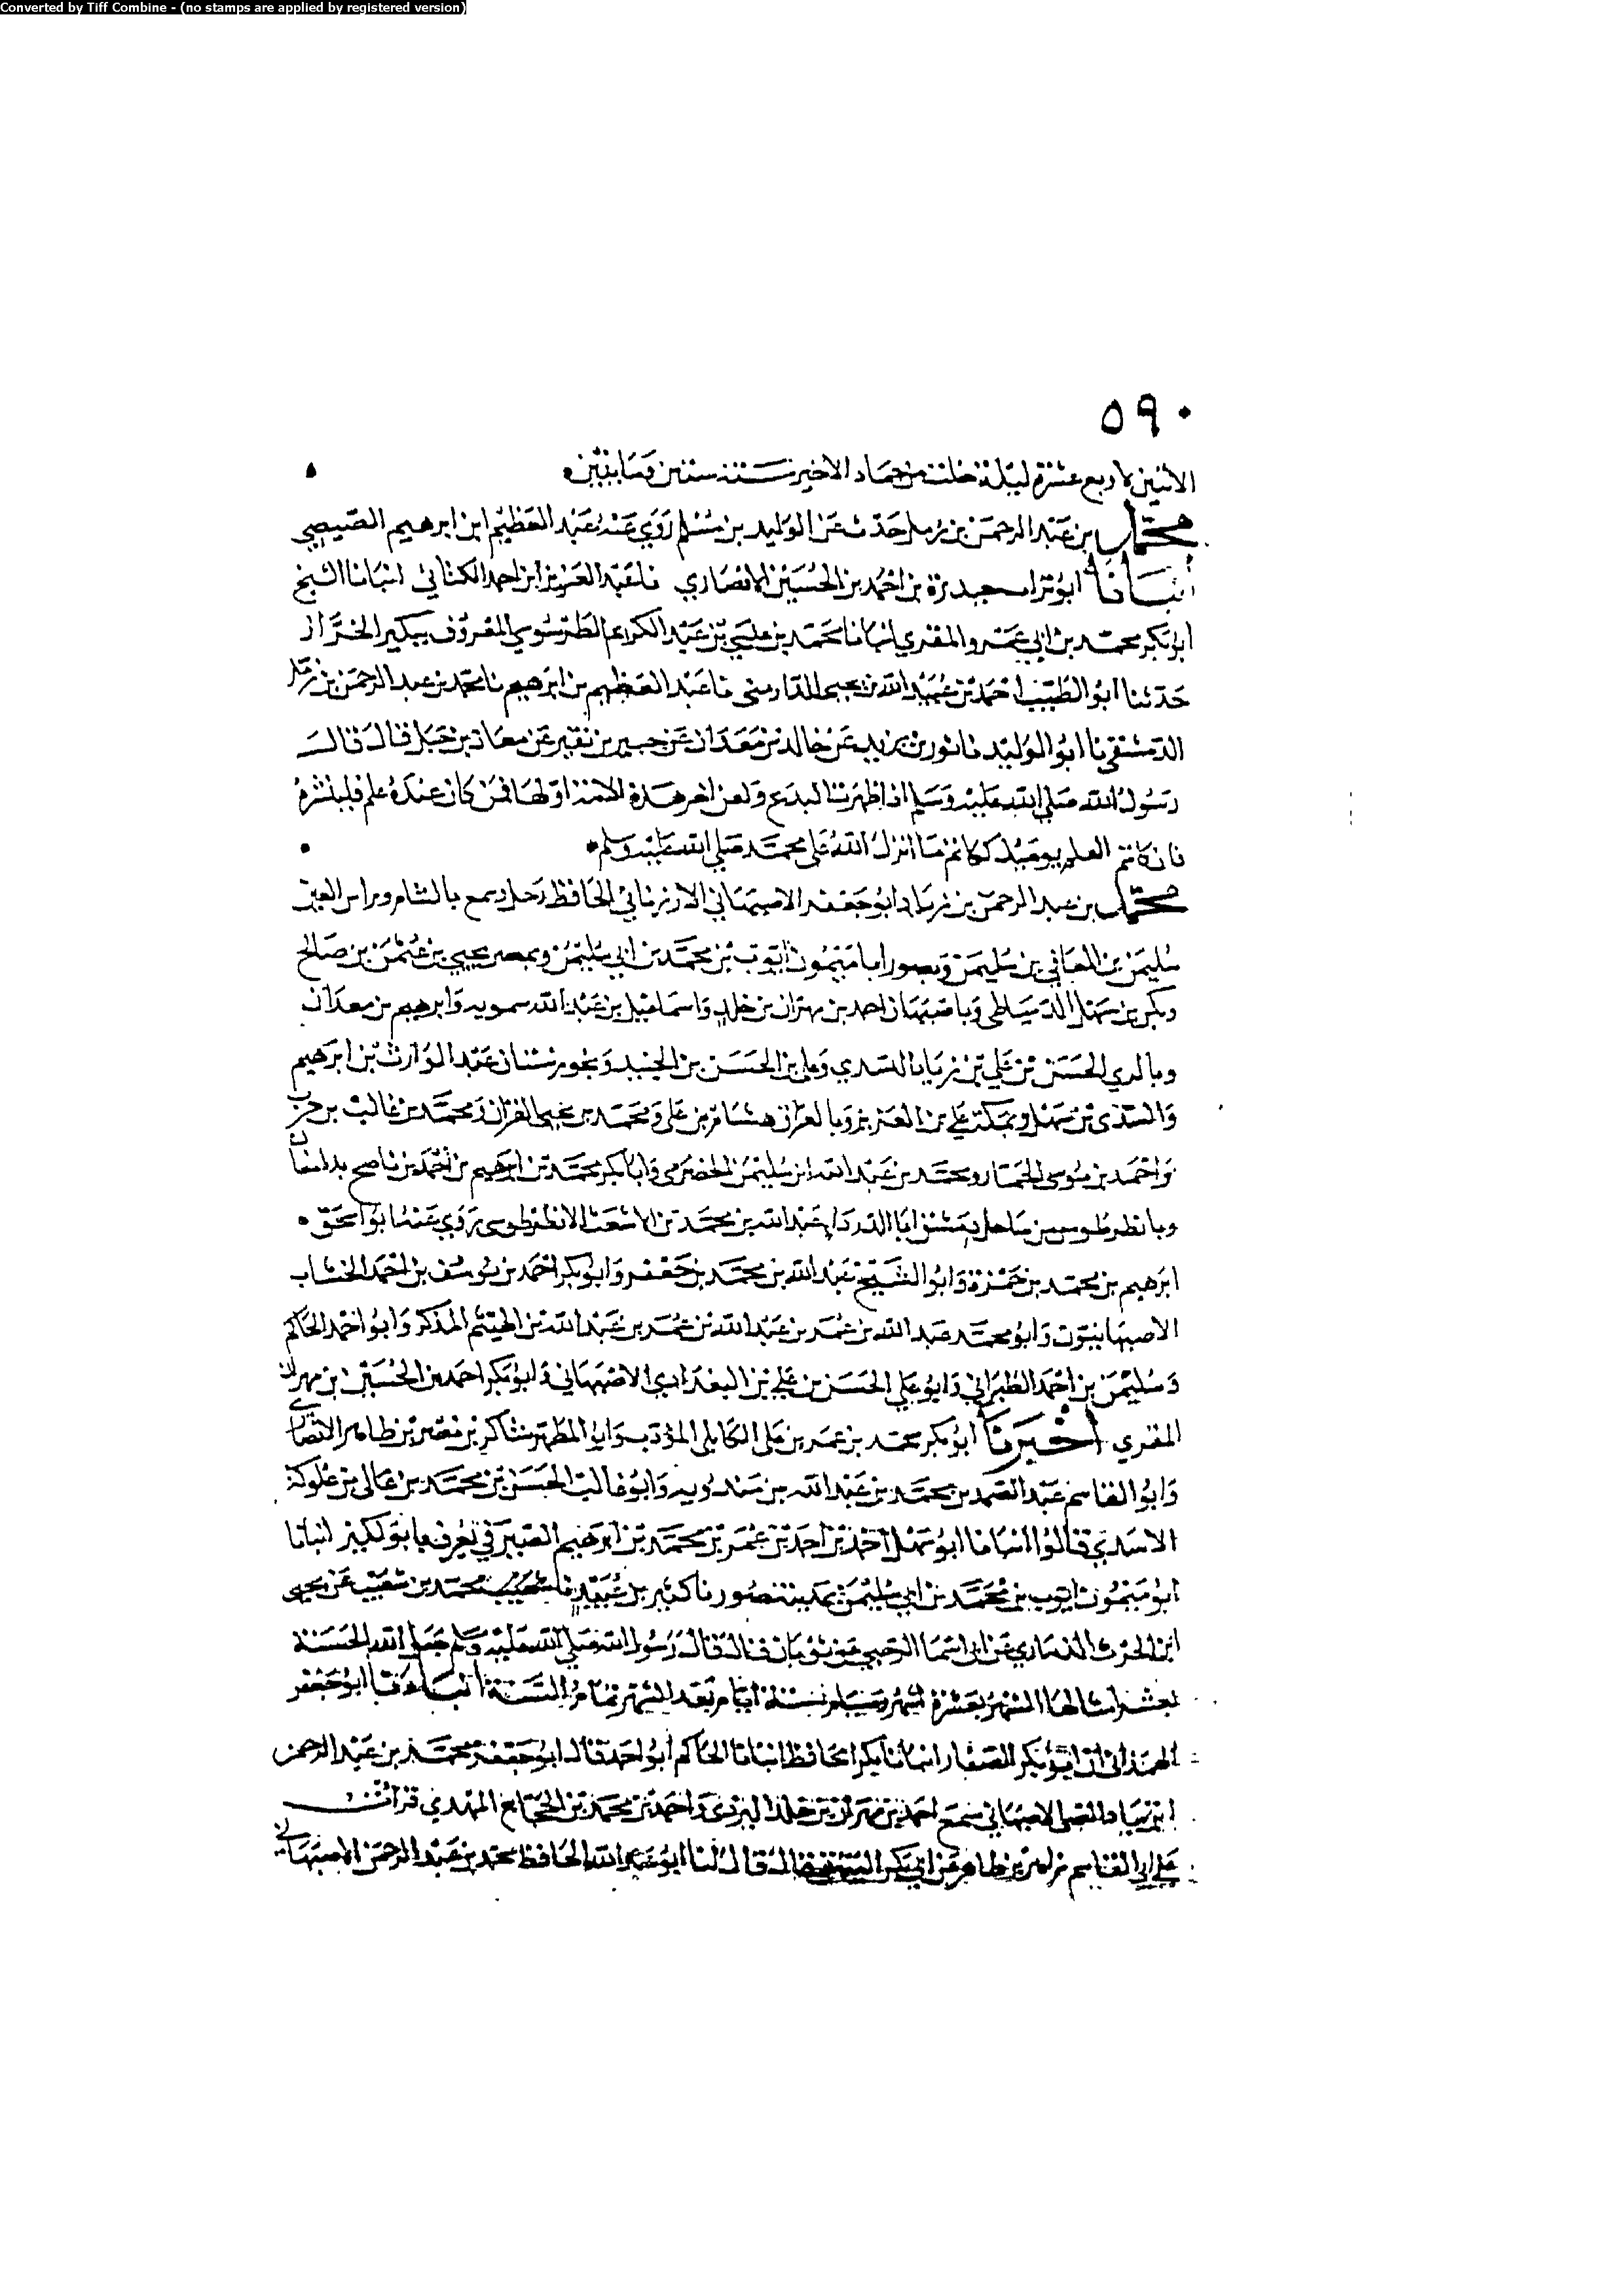 Converted by Tiff Combine - (no stamps are applied by registered version)
٥٩٠
الاثنين لاربع عشرة ليلة خلت من جماد الاخير سنة ستين ومايتين
محمد بن عبد الرحمن بن زمل حدث عن الوليد بن مسلم روى عنه عبد العظيم ابن ابرهيم
انبانا ابو تراب حيدرة بن احمد بن الحسين الانصاري نا عبد العزيز ابن احمد الكتاني انبانا الشيخ
ابو بكر محمد بن ابي عمرو المقري انبانا محمد بن علي بن عبد الكريم الطرسوسي المعروف ببكير الخزاز
حدثنا ابو الطيب احمد بن عبيد الله بن يحيى الدارمي نا عبد العظيم بن ابرهيم نا محمد بن عبد الرحمن بن زمل
الدمشقي نا ابو الوليد نا ثور بن يزيد عن خالد بن معدان عن جبير بن نفير عن معاذ بن جبل قال قال
رسول الله صلى الله عليه وسلم اذا ظهرت البدع ولعن اخر هذه الامة اولها فمن كان عنده علم فلينشره
فان كاتم العلم يوميذ ككاتم ما انزل الله على محمد صلى الله عليه وسلم
محمد بن عبد الرحمن بن زياد ابو جعفر الاصبهاني الارزناني الحافظ رحل وسمع بالشام وبراس العين
سليمن بن المعافى بن سليمن وبصور ابا ميمون ايوب بن محمد بن ابي سليمن وبمصر يحيى بن عثمن بن صالح
وبكر بن سهل الدمياطي وباصبهان احمد بن مهران بن خلد واسماعيل بن عبد الله سمويه وابرهيم بن معدان
وبالري الحسن بن علي بن زياد السري وعلي بن الحسن بن الجنيد وبخوزستان عبد الوارث بن ابرهيم
والسري بن سهل وبمكة علي بن العزيز وبالعراق هشام بن علي ومحمد بن يحيى القزاز ومحمد بن غالب بن حرب
واحمد بن موسى الحمار ومحمد بن عبد الله ابن سليمن الحضرمي وابا بكر محمد بن ابرهيم بن احمد بن ناصح بدامغان
وبانطرطوس من ساحل دمشق ابا الدرداء عبد الله بن محمد بن الاشعث الانطرطوسي روى عنه ابو اسحق
ابرهيم بن محمد بن حمزة وابو الشيخ عبد الله بن محمد بن جعفر وابو بكر احمد بن يوسف بن احمد الخشاب
الاصبهانيون وابو محمد عبد الله بن عمر بن عبد الله بن عبد الله بن الهيثم المذكر وابو احمد الحاكم
وسليمن بن احمد الطبراني وابو علي الحسن بن علي بن البغدادي الاصبهاني وابو بكر احمد بن الحسين بن مهران
المقري اخبرنا ابو بكر محمد بن عمر بن علي الكابلي المؤدب وابو المطهر شاكر بن نصر بن طاهر الانصاري
وابو القاسم عبد الصمد بن محمد بن عبد الله بن مندويه وابو غالب الحسن بن محمد بن عالي بن علوكة
الاسدي قالوا انبانا ابو سهل احمد بن احمد بن عمر بن محمد بن ابرهيم الصيرفي انبانا
ابو ميمون ايوب بن محمد بن ابي سليمن بمدينة صور نا كثير بن عبيد نا محمد بن شعيب عن يحيى
ابن الحرث الذماري عن ابي اسما الرحبي عن ثوبان قال قال رسول الله صلى الله عليه وسلم جعل الله الحسنة
بعشر امثالها الشهر بعشرة اشهر وصيام ستة ايام بعد الشهر تمام السنة انبانا ابو جعفر
الهمذاني انا ابو بكر الصفار انبانا ابو بكر الحافظ انبانا الحاكم ابو احمد قال ابو جعفر محمد بن عبد الرحمن
ابن زياد الاصبهاني سمع احمد بن مهران بن خلد اليزدي واحمد بن محمد بن الحجاج المهدي قرات
على ابي القاسم زاهر بن طاهر عن ابي بكر البيهقي قال قال لنا ابو عبد الله الحافظ محمد بن عبد الرحمن الاصبهاني